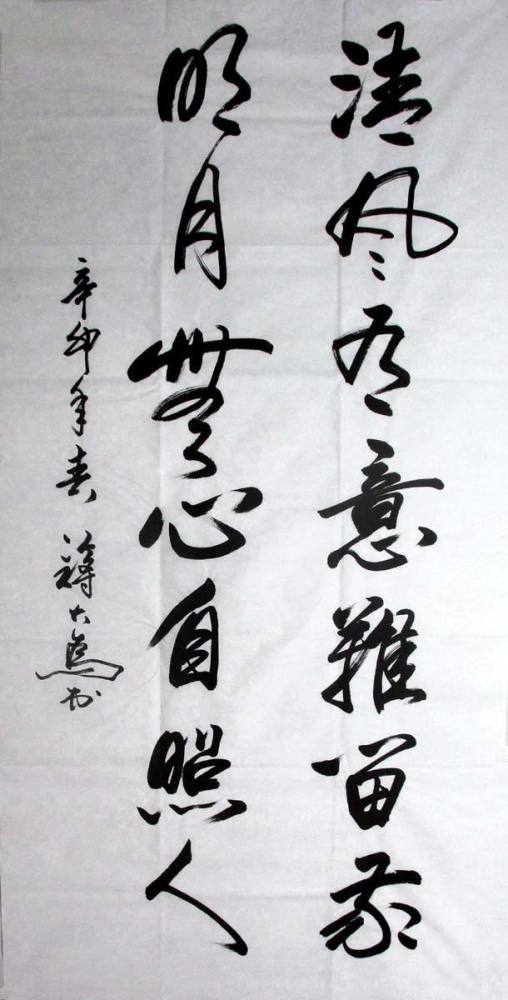 清風有意難留我
明月無心自照人
辛卯年春 大為书